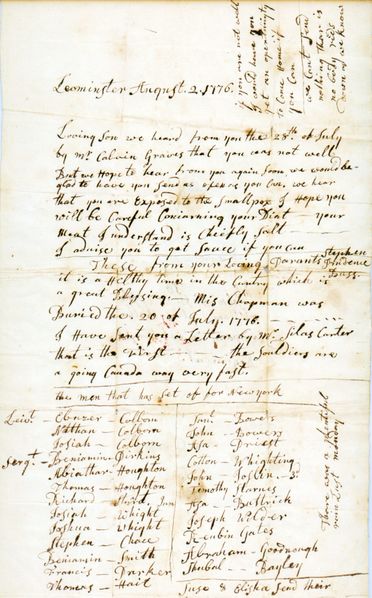 Leominster August. 2. 1776.
Loving Son we heard from you the 28th of July
by Mr Calvin Graves that you was not well
But we Hope to hear from you again Soon we would be
glad to have you Send as often as you Can, we hear
that you are Exposed to the Smallpox I Hope you
will be Careful Conscarning your Diat — your
Meat I understand is Chiefly Salt —
I advise you to get Sauce if you can
These from your Loving Parants Stephen
Prudence
Buss.
it is a Helthy time in the Cuntry which is
a great Blessing — Mis Chapman was
Buried the. 20 of July. 1776.
I Have Sent you a Letter by Mr. Silas Carter
that is the first — the Souldiers are
a going Canada way very fast.
the men that has Set of for Newyork
Lievt. — Ebnezer — Colborn
Nathan — Colborn
Josiah — Colborn
Sergt. — Benjamin
Abiathar — Houghton
Thomas — Houghton
Richard
Josiah — Whight
Joshua — Whight
Stephen — Chace
Benjamin — Smith
Francis — Parker
Thomas — Hait
Saml — Bowers
John — Bowers
Asa — Priest
Cotton — Whighting
John Joslin 3d
Timothy
Asa — Buttrick
Joseph Wilder
Gates
Abraham — Goodnough
Shubal — Bayley
Suse & Elisha Send their
if you are not well
I would have you
get an opernuity
to Come Home if
you Can
we Cant Send
nothing thar is
no body rids
Down as we know
These are a beautiful